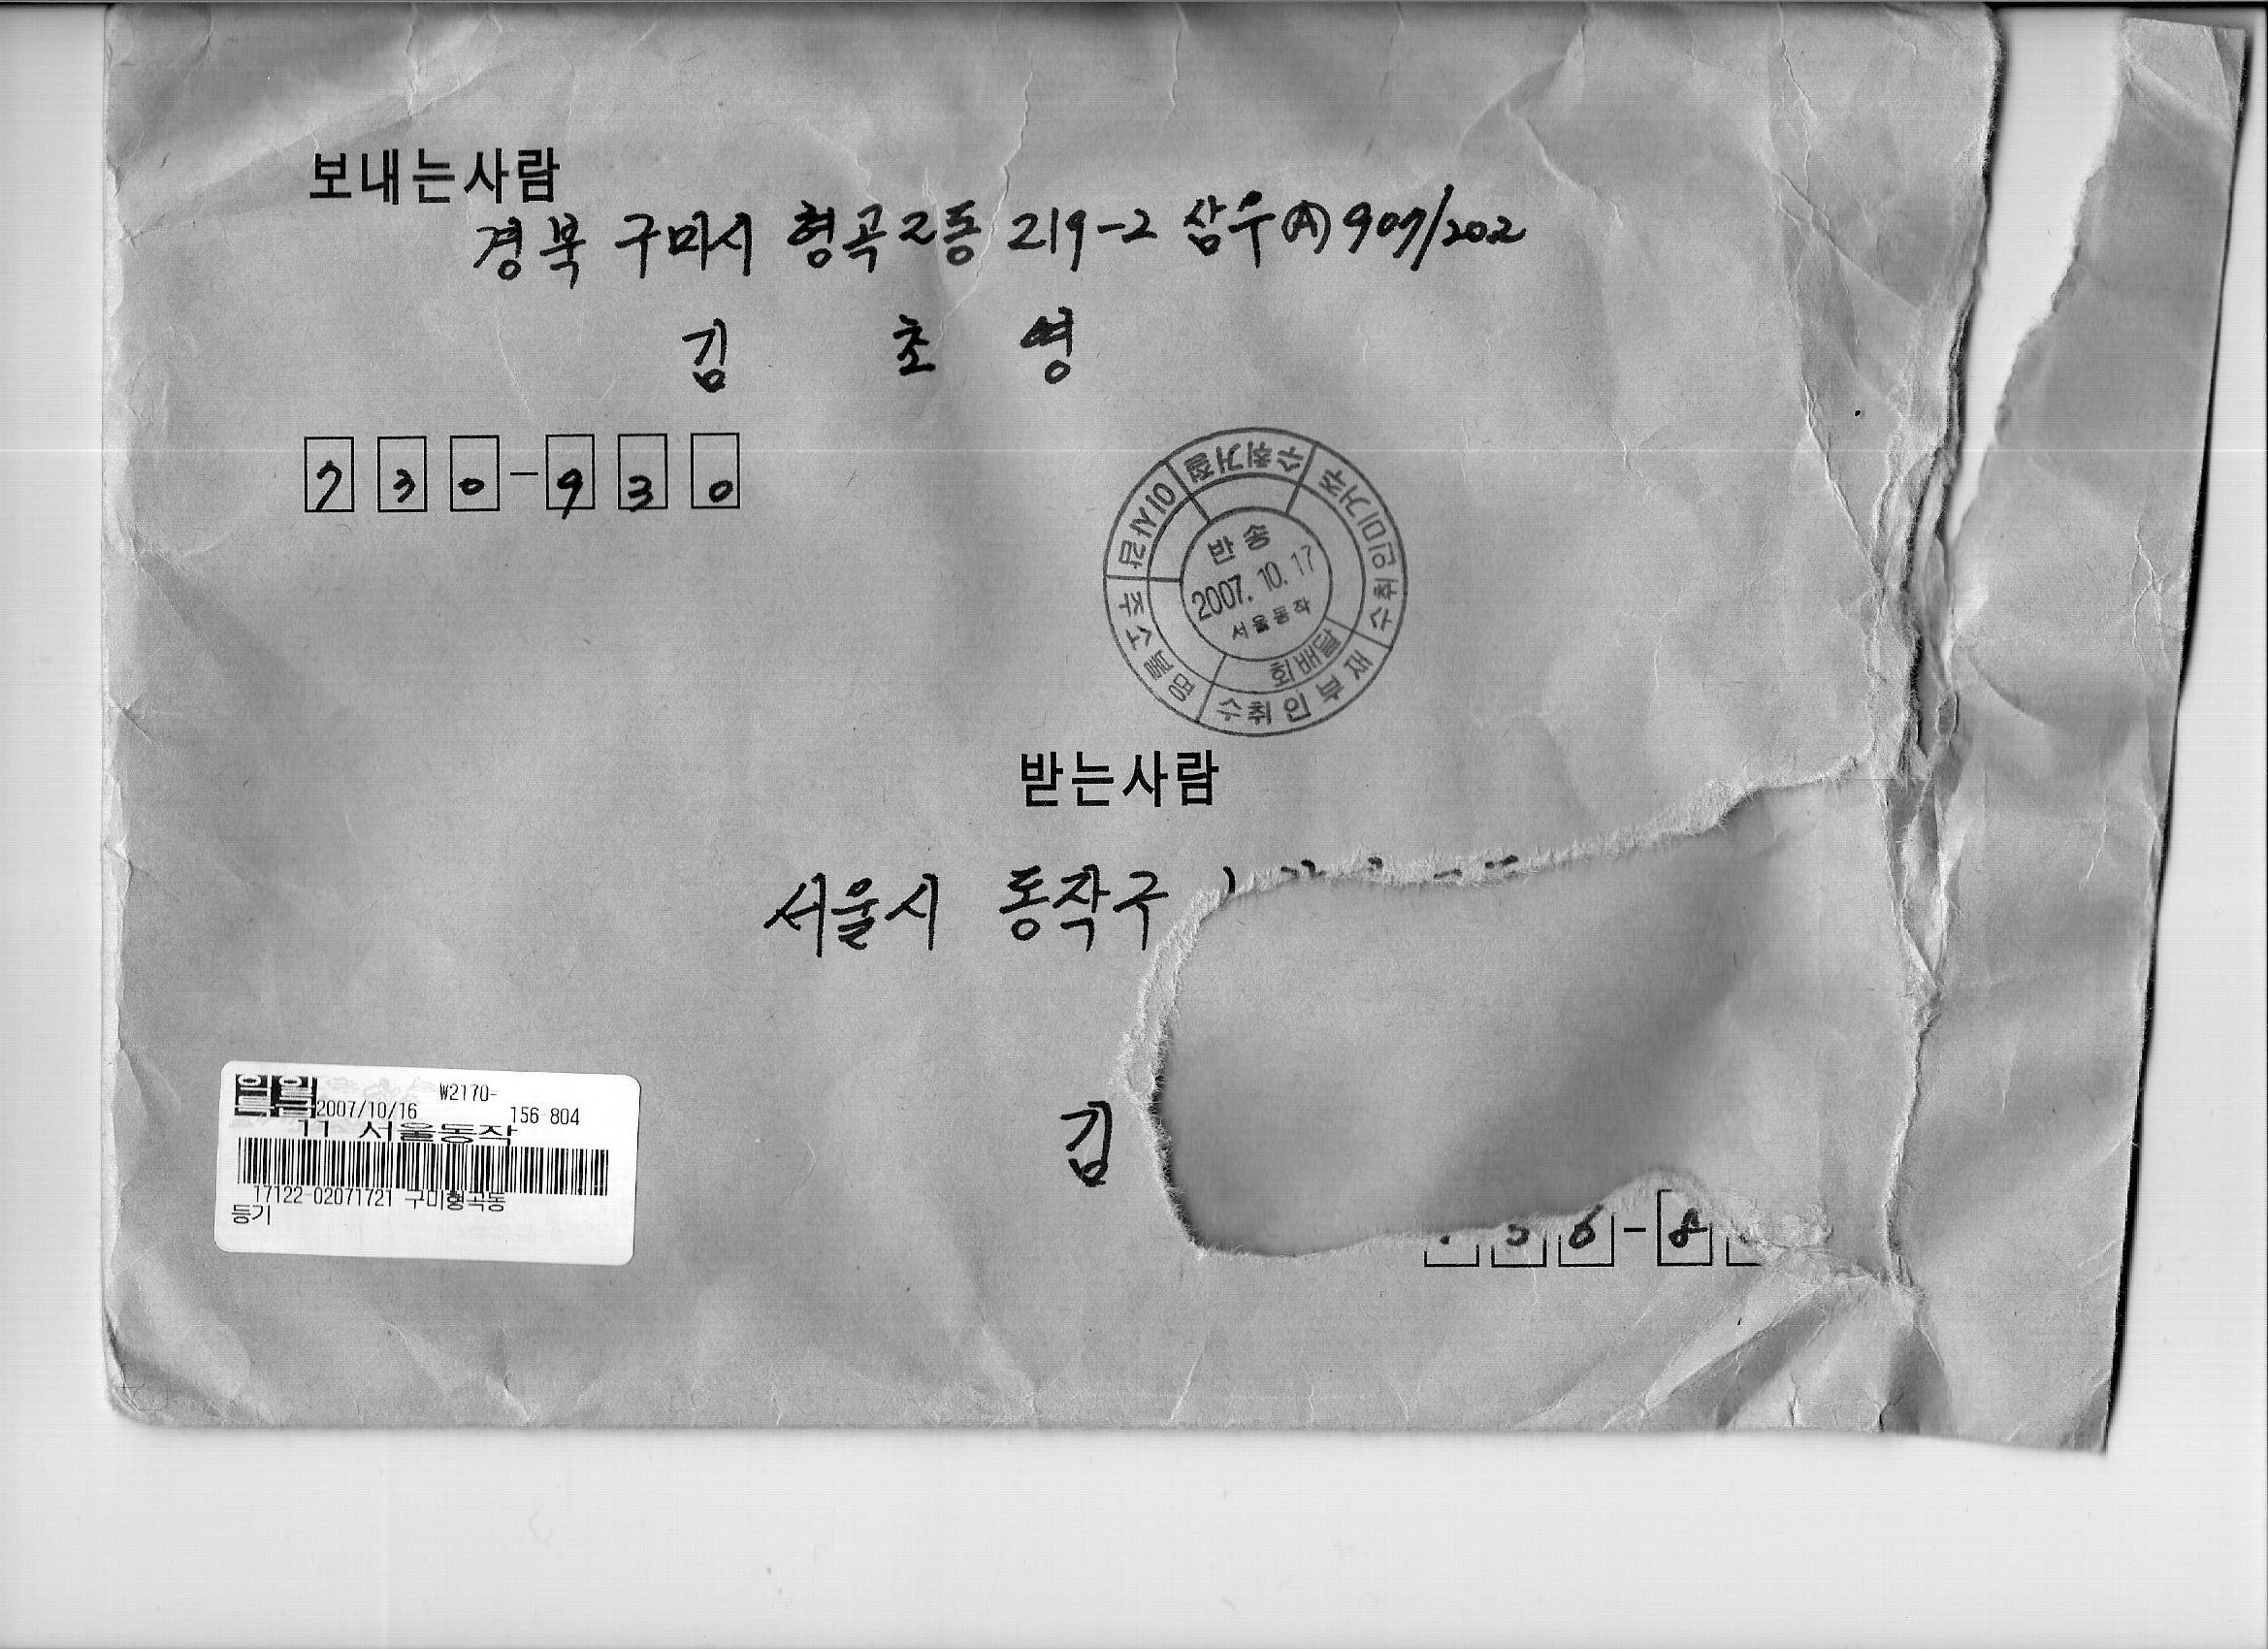 보내는사람
경북 구미시 형곡2동 219-2 삼우(A) 907/202
김 초 영
730-930
수취거절
수취인미거주
이사감
주소불명
수취인부재
회배달
반송
2007. 10. 17
서울동작
받는사람
서울시 동작구
김
56-8
일일특급
W2170-
2007/10/16
156 804
11 서울동작
17122-02071721 구미형곡동
등기